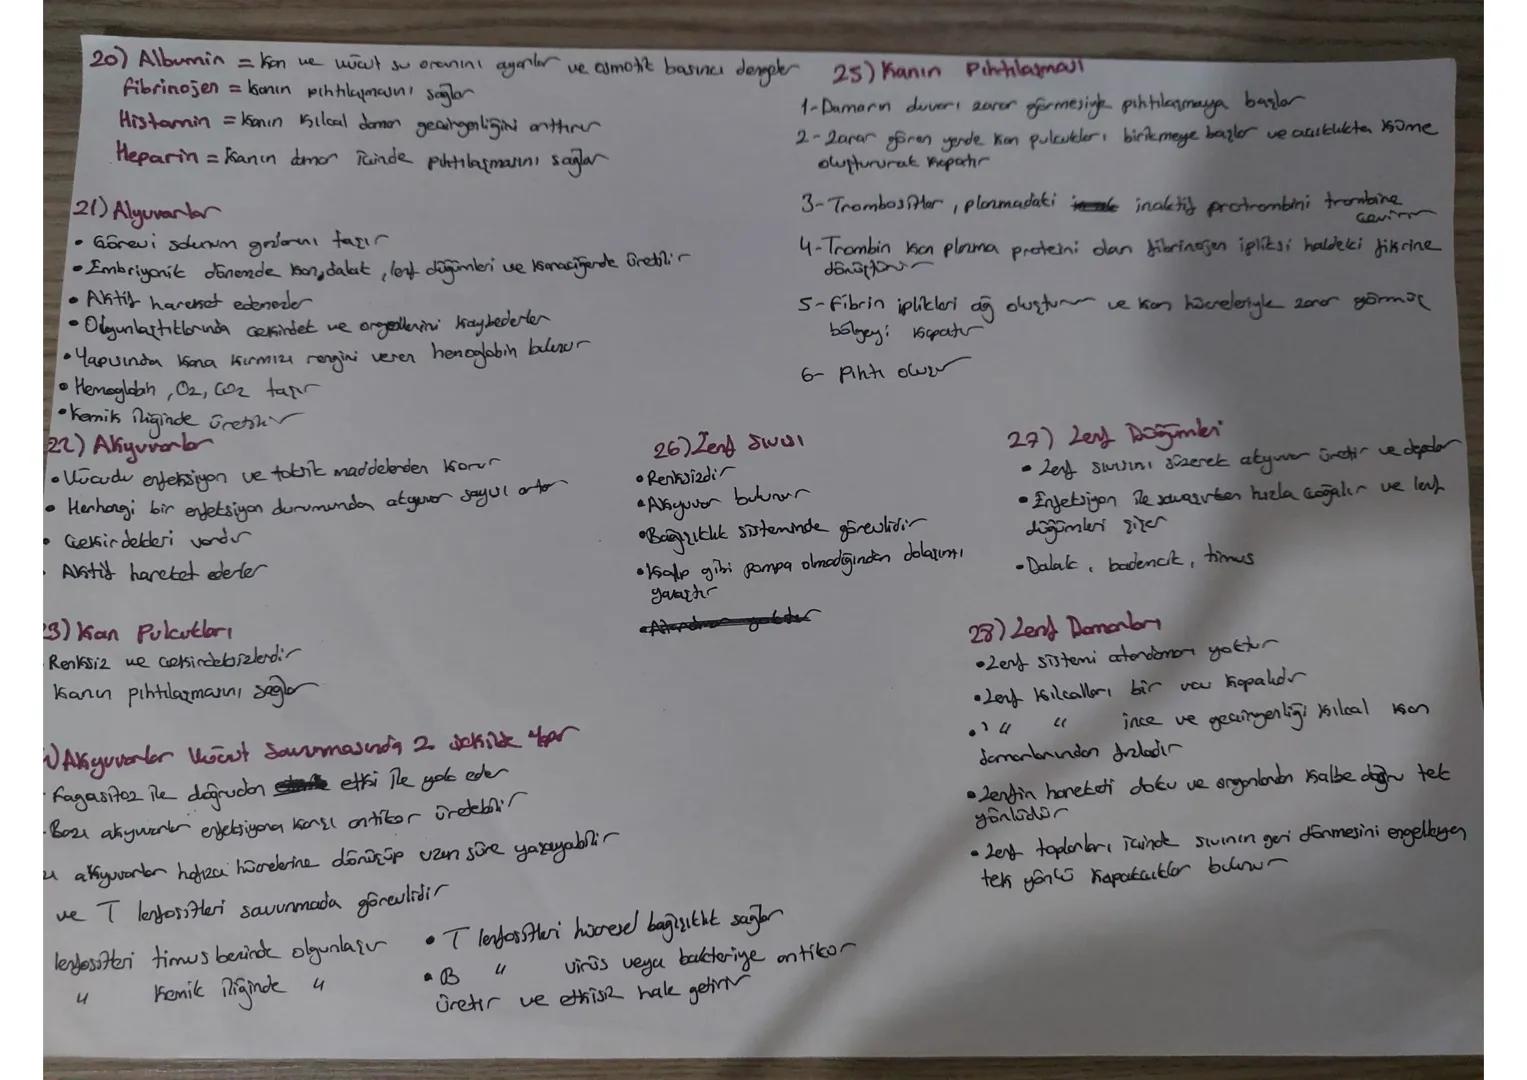 20) Albumin = Kan ve vücut su oranını ayarlar ve osmotik basıncı dengeler
Fibrinojen = Kanın pıhtılaşmasını sağlar
Histamin = Kanın kılcal damar geçirgenliğini arttırır
Heparin = Kanın damar içinde pıhtılaşmasını sağlar
21) Alyuvarlar
• Görevi solunum gazlarını taşır
• Embriyonik dönemde kan, dalak, lenf düğümleri ve karaciğerde üretilir
• Aktif hareket edemezler
• Olgunlaştıklarında çekirdek ve organellerini kaybederler
• Yapısında kana kırmızı rengini veren hemoglobin bulunur
• Hemoglobin, O2, CO2 taşır
• Kemik iliğinde üretilir
22) Akyuvarlar
• Vücudu enfeksiyon ve toksik maddelerden korur
• Herhangi bir enfeksiyon durumundan akyuvar sayısı artar
• Çekirdekleri vardır
Aktif hareket ederler
3) Kan Pulcukları
Renksiz ve çekirdeksizlerdir
Kanın pıhtılaşmasını sağlar
) Akyuvarlar Vücut Savunmasında 2 şekilde Yapar
Fagositoz ile doğrudan etki ile yok eder
Bazı akyuvarlar enfeksiyona karşı antikor üretebilir
akyuvarlar hafıza hücrelerine dönüşüp uzun süre yaşayabilir
ve T lenfositleri savunmada görevlidir
lenfositleri timus bezinde olgunlaşır
" Kemik iliğinde "
• T lenfositleri hücresel bağışıklık sağlar
• B " virüs veya bakteriye antikor
üretir ve etkisiz hale getirir
25) Kanın Pıhtılaşması
1-Damarın duvarı zarar görmesiyle pıhtılaşmaya başlar
2-Zarar gören yerde kan pulcukları birikmeye başlar ve açıklıkta küme
oluştururak kapatır
3-Trombositler, plazmadaki inaktif protrombini trombine
çevirir
4-Trombin kan plazma proteini olan fibrinojen ipliksi haldeki fibrine
dönüştürür
5-Fibrin iplikleri ağ oluşturur ve kan hücreleriyle zarar görmüş
bölgeyi kapatır
6- Pıhtı oluşur
26) Lenf Sıvısı
• Renksizdir
• Akyuvar bulunur
• Bağışıklık sisteminde görevlidir
• Kalp gibi pompa olmadığından dolaşımı
yavaştır
27) Lenf Düğümleri
• Lenf sıvısını süzerek akyuvar üretir ve depolar
• Enfeksiyon ile savaşırken hızla çoğalır ve lenf
düğümleri şişer
• Dalak, bademcik, timus
28) Lenf Damarları
• Lenf sistemi atardamarı yoktur
• Lenf kılcalları bir ucu kapalıdır
• " " ince ve geçirgenliği kılcal kan
damarlarından fazladır
• Lenfin hareketi doku ve organlardan kalbe doğru tek
yönlüdür
• Lenf toplarları içinde sıvının geri dönmesini engelleyen
tek yönlü kapakçıklar bulunur